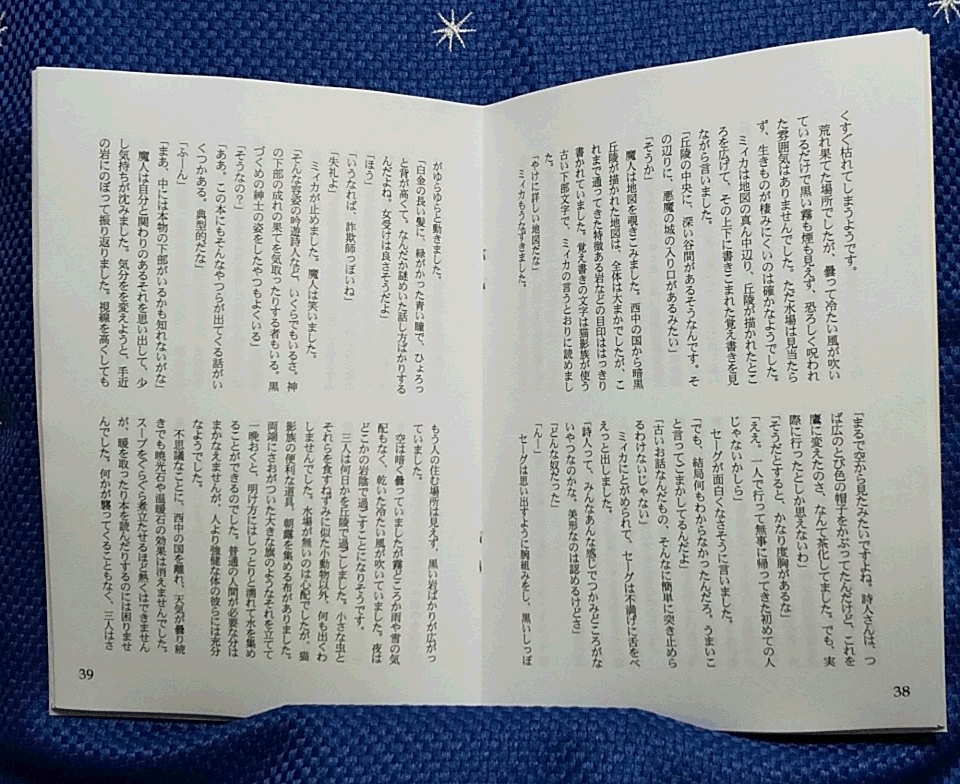 くすぐ枯れてしまうようです。
荒れ果てた場所でしたが、曇って冷たい風が吹い
ているだけで黒い霧も煙も見えず、恐ろしく呪われ
た雰囲気はありませんでした。ただ水場は見当たら
ず、生きものが棲みにくいのは確かなようでした。
ミイカは地図の真ん中辺り、丘陵が描かれたとこ
ろを広げて、その上下に書きこまれた覚え書きを見
ながら言いました。
「丘陵の中央に、深い谷間があるそうなんです。そ
の辺りに、悪魔の城の入り口があるみたい」
「そうか」
魔人は地図を覗きこみました。西中の国から暗黒
丘陵が描かれた地図は、全体は大まかでしたが、こ
れまで通ってきた特徴ある岩などの目印ははっきり
書かれていました。覚え書きの文字は猫影族が使う
古い下部文字で、ミイカの言うとおりに読めまし
た。
「やけに詳しい地図だな」
ミイカもうなずきました。
「まるで空から見たみたいですよね。詩人さんは、つ
ば広のとび色の帽子をかぶってたんだけど、これを
鷹に変えたのさ、なんて茶化してました。でも、実
際に行ったとしか思えないわ」
「そうだとすると、かなり度胸があるな」
「ええ。一人で行って無事に帰ってきた初めての人
じゃないかしら」
セーグが面白くなさそうに言いました。
「でも、結局何もわからなかったんだろ。うまいこ
と言ってごまかしてるんだよ」
「古いお話なんだもの、そんなに簡単に突き止めら
るわけないじゃない」
ミイカにとがめられて、セーグは不満げに舌をぺ
えっと出しました。
「詩人って、みんなあんな感じでつかみどころがな
いやつなのかな。美形なのは認めるけどさ」
「どんな奴だった」
「んー」
セーグは思い出すように腕組みをし、黒いしっぽ
38
がゆらゆらと動きました。
「白金の長い髪に、緑がかった青い瞳で、ひょろっ
と背が高くて、なんだか謎めいた話し方ばかりする
んだよね。女受けは良さそうだよ」
「ほう」
「いうなれば、詐欺師っぽいね」
「失礼よ」
ミイカが止めました。魔人は笑いました。
「そんな容姿の吟遊詩人など、いくらでもいるさ。神
の下部の成れの果てを気取ったりする者もいる。黒
づくめの紳士の姿をしたやつもよくいる」
「そうなの？」
「ああ。この本にもそんなやつらが出てくる話がい
くつかある。典型的だな」
「ふーん」
「まあ、中には本物の下部がいるかも知れないがな」
魔人は自分と関わりのあるそれを思い出して、少
し気持ちが沈みました。気分をを変えようと、手近
の岩にのぼって振り返りました。視線を高くしても
もう人の住む場所は見えず、黒い岩ばかりが広がっ
ていました。
空は暗く、曇っていましたが霧どころか雨や雪の気
配もなく、乾いた冷たい風が吹いていました。夜は
どこかの岩陰で過ごすことになりそうです。
三人は何日かを丘陵で過ごしました。小さな虫と
それらを食すねずみに似た小動物以外、何も出くわ
しませんでした。水場が無いのは心配でしたが、猫
影族の便利な道具、朝露を集める布がありました。
両端にさおがついた大きな旗のようなそれを立てて
一晩おくと、明け方にはしっとりと濡れて水を集め
ることができるのでした。普通の人間が必要な分は
まかなえませんが、人より強健な体の彼らには充分
なようでした。
不思議なことに、西中の国を離れ、天気が曇り続
きでも暁光石や温暖石の効果は消えませんでした。
スープをぐらぐら煮立たせるほど熱くはできません
が、暖を取ったり本を読んだりするのには困りませ
んでした。何かが襲ってくることもなく、三人はさ
39